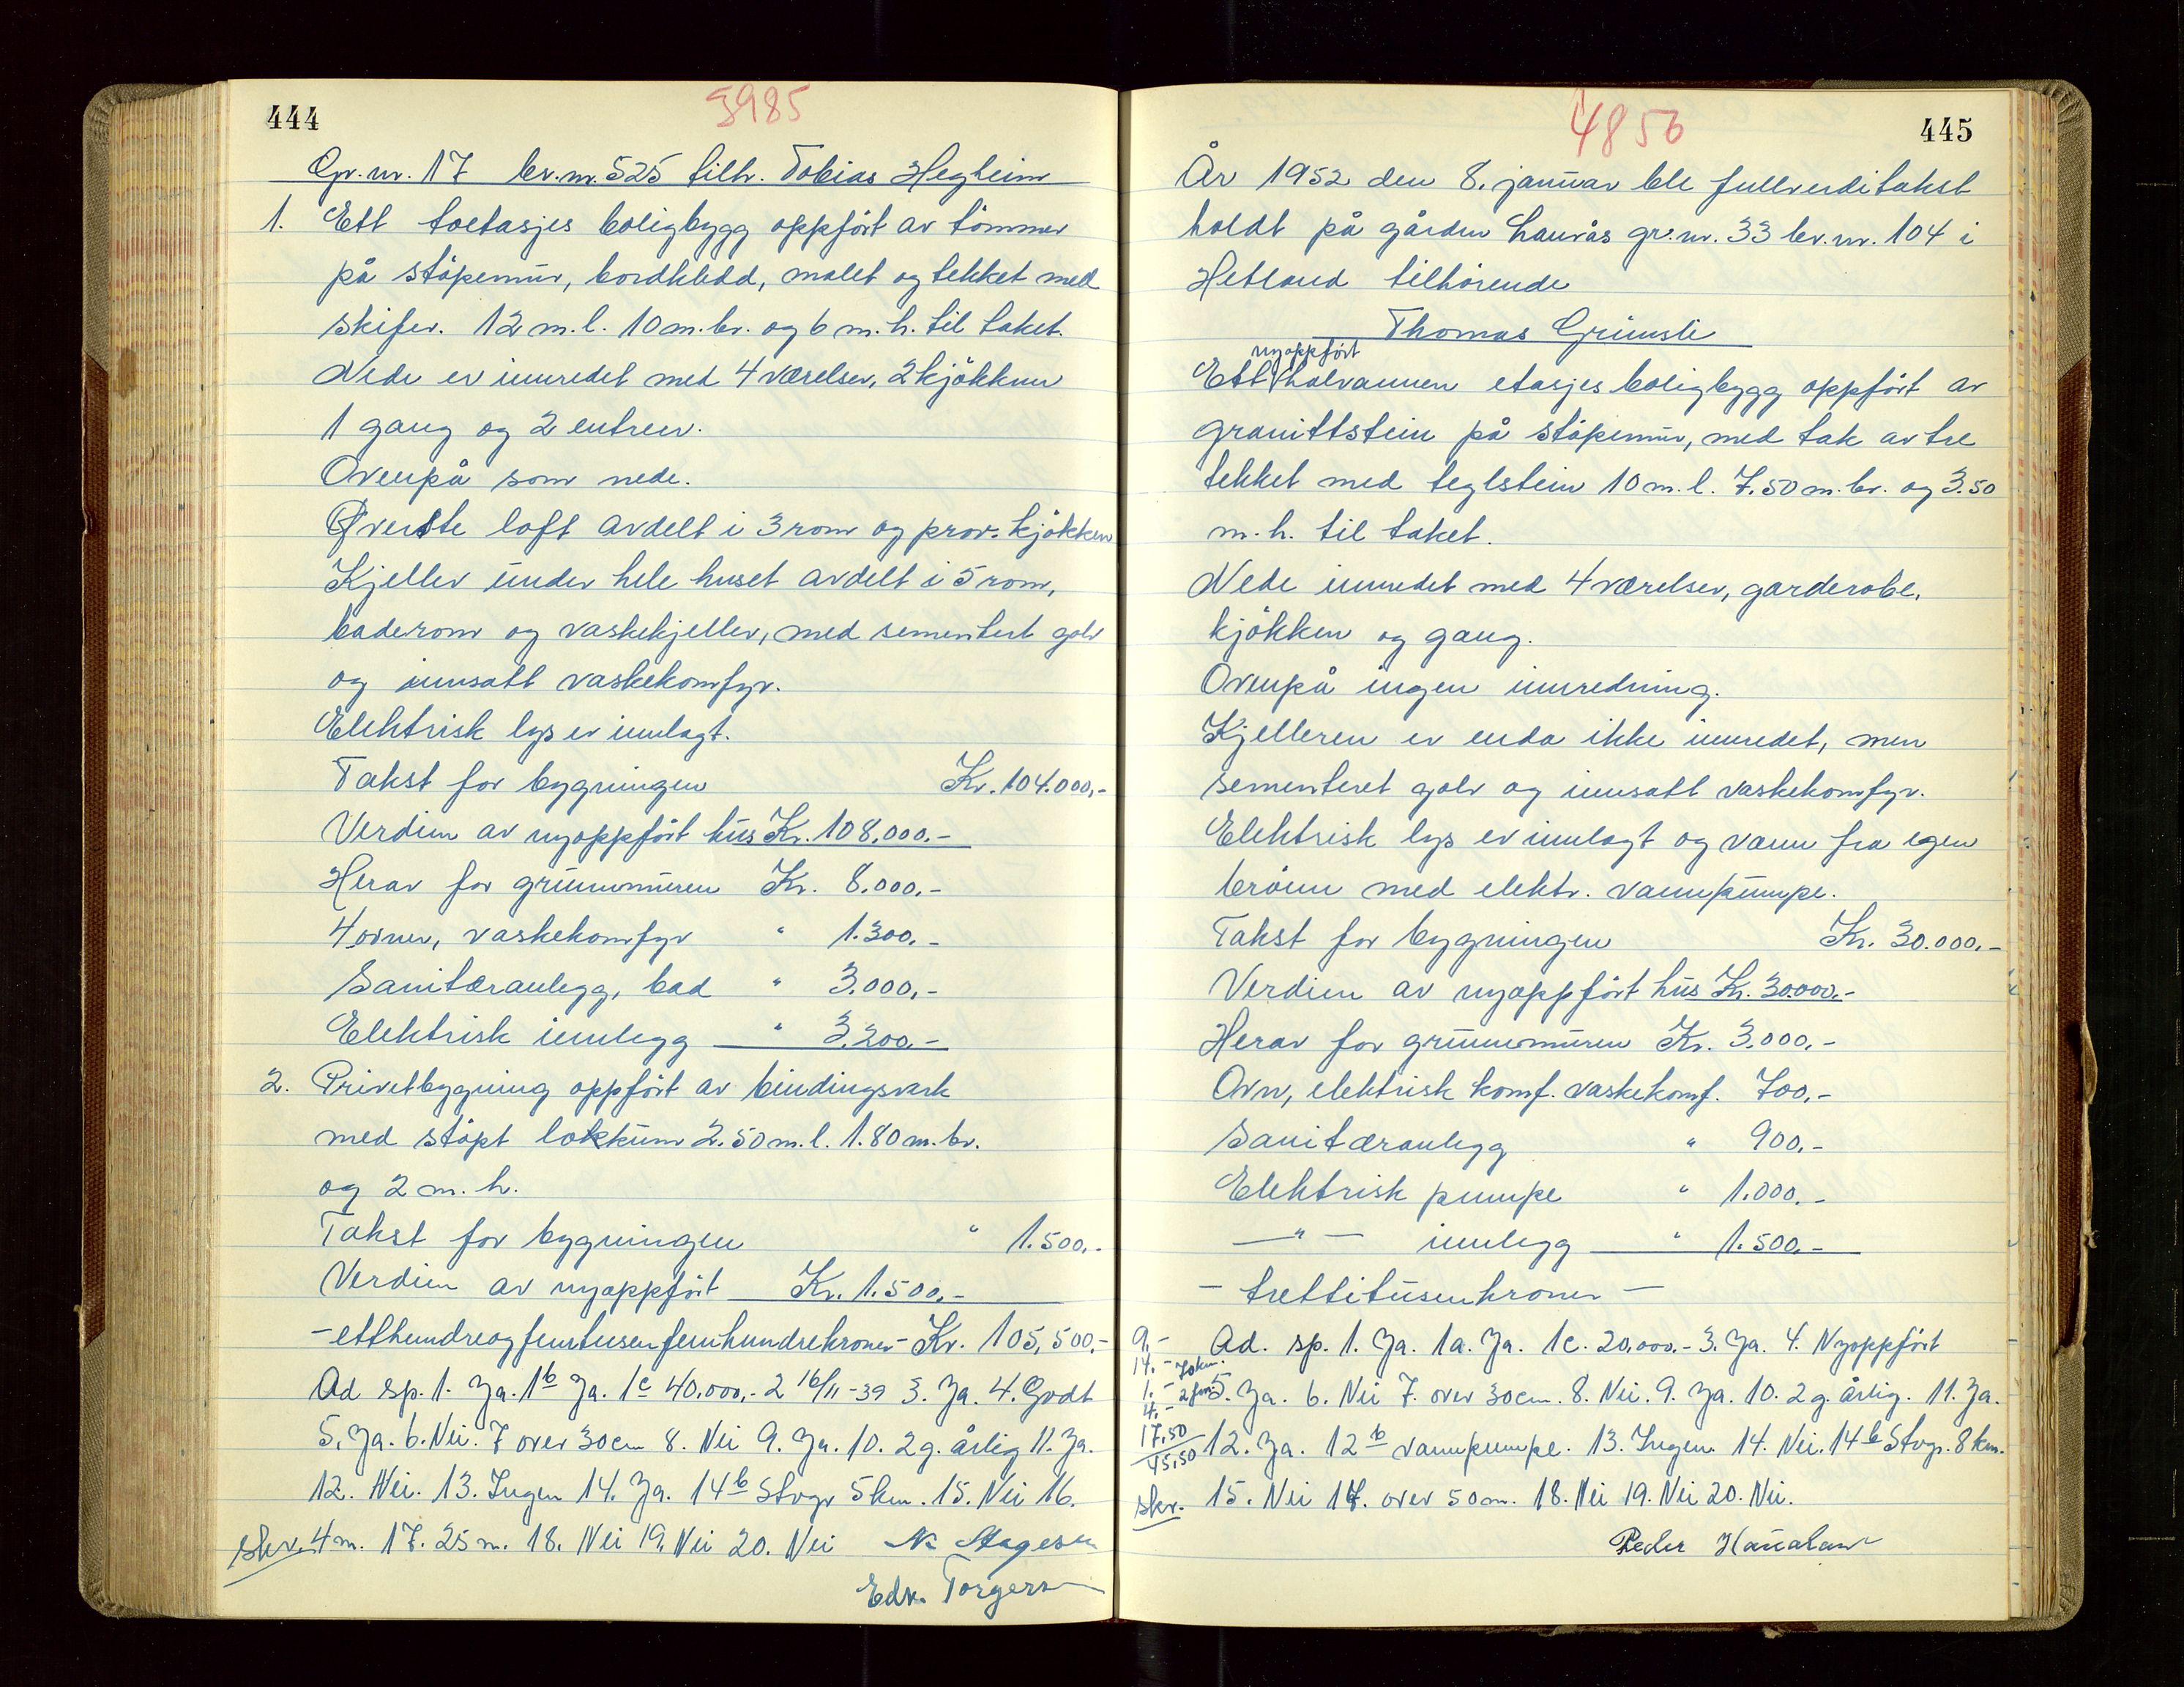 444
3985
Gr. nr. 17 br. nr. 525 tilh. Tobias Hegheim
1. Ett toetasjes boligbygg oppfört av tömmer
på stöpemur, bordkledd, malet og tekket med
skifer. 12 m. l. 10 m. br. og 6 m. h. til taket.
Nede er innredet med 4 værelser, 2 kjökkener
1 gang og 2 entreer.
Ovenpå som nede.
Øverste loft avdelt i 3 rom og prov. kjökken
Kjeller under hele huset avdelt i 5 rom,
baderom og vaskekjeller, med sementert golv
og innsatt vaskekomfyr.
Elektrisk lys er innlagt.
Takst for bygningen Kr. 104.000,-
Verdien av nyoppfört hus Kr. 108.000.-
Herav for grunnmuren Kr. 8.000,-
4 ovner, vaskekomfyr " 1.300.-
Sanitæranlegg, bad " 3.000,-
Elektrisk innlegg " 3.200,-
2. Privetbygning oppfört av bindingsverk
med stöpt lokkum 2.50 m. l. 1.80 m. br.
og 2 m. h.
Takst for bygningen " 1.500.-
Verdien av nyoppfört Kr. 1.500,-
- etthundreogfemtusenfemhundrekroner - Kr. 105,500,-
Ad sp. 1. Ja. 1b Ja. 1c 40.000,- 2 16/11-39 3. Ja. 4. Godt
5. Ja. 6. Nei. 7 over 30 cm 8. Nei 9. Ja. 10. 2 g. årlig 11. Ja.
12. Nei. 13. Ingen 14. Ja. 14b Stvgr 5 km. 15. Nei 16.
skr. 4 m. 17. 25 m. 18. Nei 19. Nei 20. Nei
Edv. Torgersen
4856
445
År 1952 den 8. januar ble fullverditakst
holdt på gården Haurås gr. nr. 33 br. nr. 104 i
Hetland tilhörende
Thomas Grimsli
nyoppfört
Ett halvannen etasjes boligbygg oppfört av
granittstein på stöpemur, med tak av tre
tekket med teglstein 10 m. l. 7.50 m. br. og 3.50
m. h. til taket.
Nede innredet med 4 værelser, garderobe,
kjökken og gang.
Ovenpå ingen innredning.
Kjelleren er enda ikke innredet, men
sementeret golv og innsatt vaskekomfyr.
Elektrisk lys er innlagt og vann fra egen
brönn med elektr. vannpumpe.
Takst for bygningen Kr. 30.000.-
Verdien av nyoppfört hus Kr. 30.000.-
Herav for grunnmuren Kr. 3.000,-
Ovn, elektrisk komf. vaskekomf. 700,-
Sanitæranlegg " 900,-
Elektrisk pumpe " 1.000.-
— " — innlegg " 1.500.-
- trettitusenkroner -
9,- Ad. sp. 1. Ja. 1a. Ja. 1c. 20.000.- 3. Ja. 4. Nyoppfört
14.-
1.-
4.- 5. Ja. 6. Nei 7. over 30 cm. 8. Nei. 9. Ja. 10. 2 g. årlig. 11. Ja.
17,50
45,50 12. Ja. 12b vannpumpe. 13. Ingen. 14. Nei. 14b Stvgr. 8 km.
skr. 15. Nei 17. over 50 m. 18. Nei 19. Nei 20. Nei.
Peder